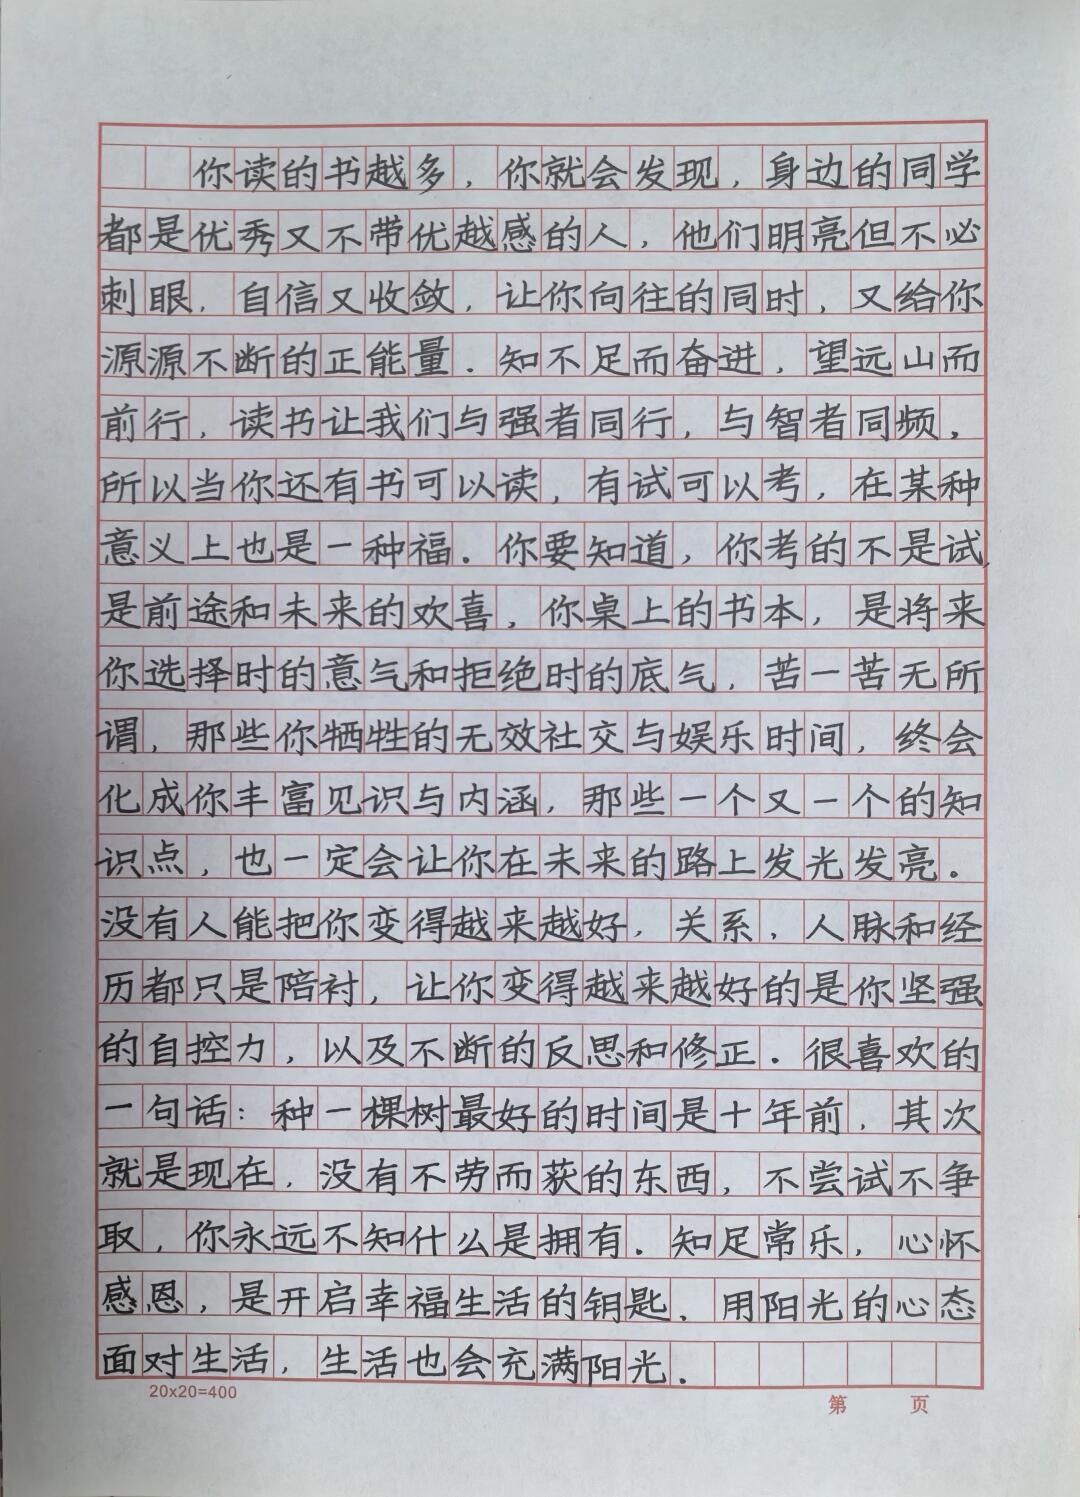 你读的书越多，你就会发现，身边的同学
都是优秀又不带优越感的人，他们明亮但不必
刺眼，自信又收敛，让你向往的同时，又给你
源源不断的正能量．知不足而奋进，望远山而
前行，读书让我们与强者同行，与智者同频，
所以当你还有书可以读，有试可以考，在某种
意义上也是一种福．你要知道，你考的不是试，
是前途和未来的欢喜，你桌上的书本，是将来
你选择时的意气和拒绝时的底气，苦一苦无所
谓，那些你牺牲的无效社交与娱乐时间，终会
化成你丰富见识与内涵，那些一个又一个的知
识点，也一定会让你在未来的路上发光发亮。
没有人能把你变得越来越好，关系，人脉和经
历都只是陪衬，让你变得越来越好的是你坚强
的自控力，以及不断的反思和修正．很喜欢的
一句话：种一棵树最好的时间是十年前，其次
就是现在，没有不劳而获的东西，不尝试不争
取，你永远不知什么是拥有．知足常乐，心怀
感恩，是开启幸福生活的钥匙．用阳光的心态
面对生活，生活也会充满阳光．
20x20=400 第 页